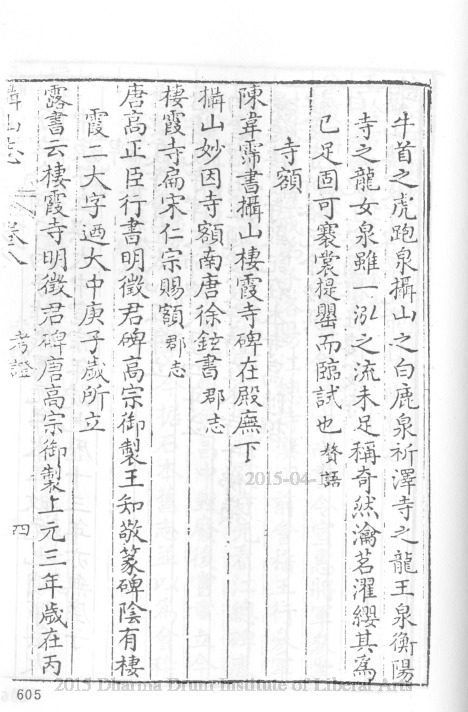 牛首之虎跑泉攝山之白鹿泉祈澤寺之龍王泉衡陽
寺之龍女泉雖一泓之流未足稱奇然瀹茗濯纓其爲
已足固可褰裳提罌而臨試也 贅語
寺額
陳韋霈書攝山棲霞寺碑在殿廡下
攝山妙因寺額南唐徐鉉書 郡志
棲霞寺扁宋仁宗賜額 郡志
唐高正臣行書明徵君碑高宗御製王知敬篆碑陰有棲
霞二大字迺大中庚子歲所立
露書云棲霞寺明徵君碑唐高宗御製上元三年歲在丙
攝山志 卷八 考證 四
2015-04-1
2015 Dharma Drum Institute of Liberal Arts
605